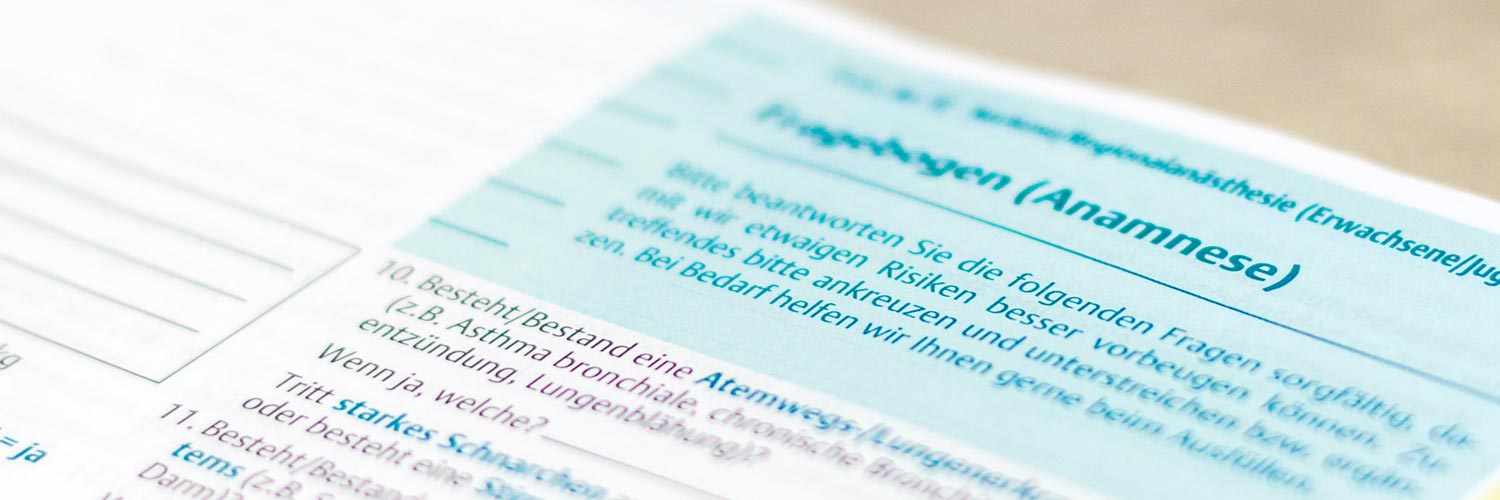 Regionalanästhesie (Erwachsene/Jug
Fragebogen (Anamnese)
Bitte beantworten Sie die folgenden Fragen sorgfältig, da-
mit wir etwaigen Risiken besser vorbeugen können. Zu-
treffendes bitte ankreuzen und unterstreichen bzw. ergän-
zen. Bei Bedarf helfen wir Ihnen gerne beim Ausfüllen.
10. Besteht/Bestand eine Atemwegs-/Lungenerkr
(z.B. Asthma bronchiale, chronische Bronch
entzündung, Lungenblähung)?
Wenn ja, welche?
Tritt starkes Schnarchen
oder besteht eine
11. Besteht/Bestand
tems (z.B. S
Darm)?
kg
= ja